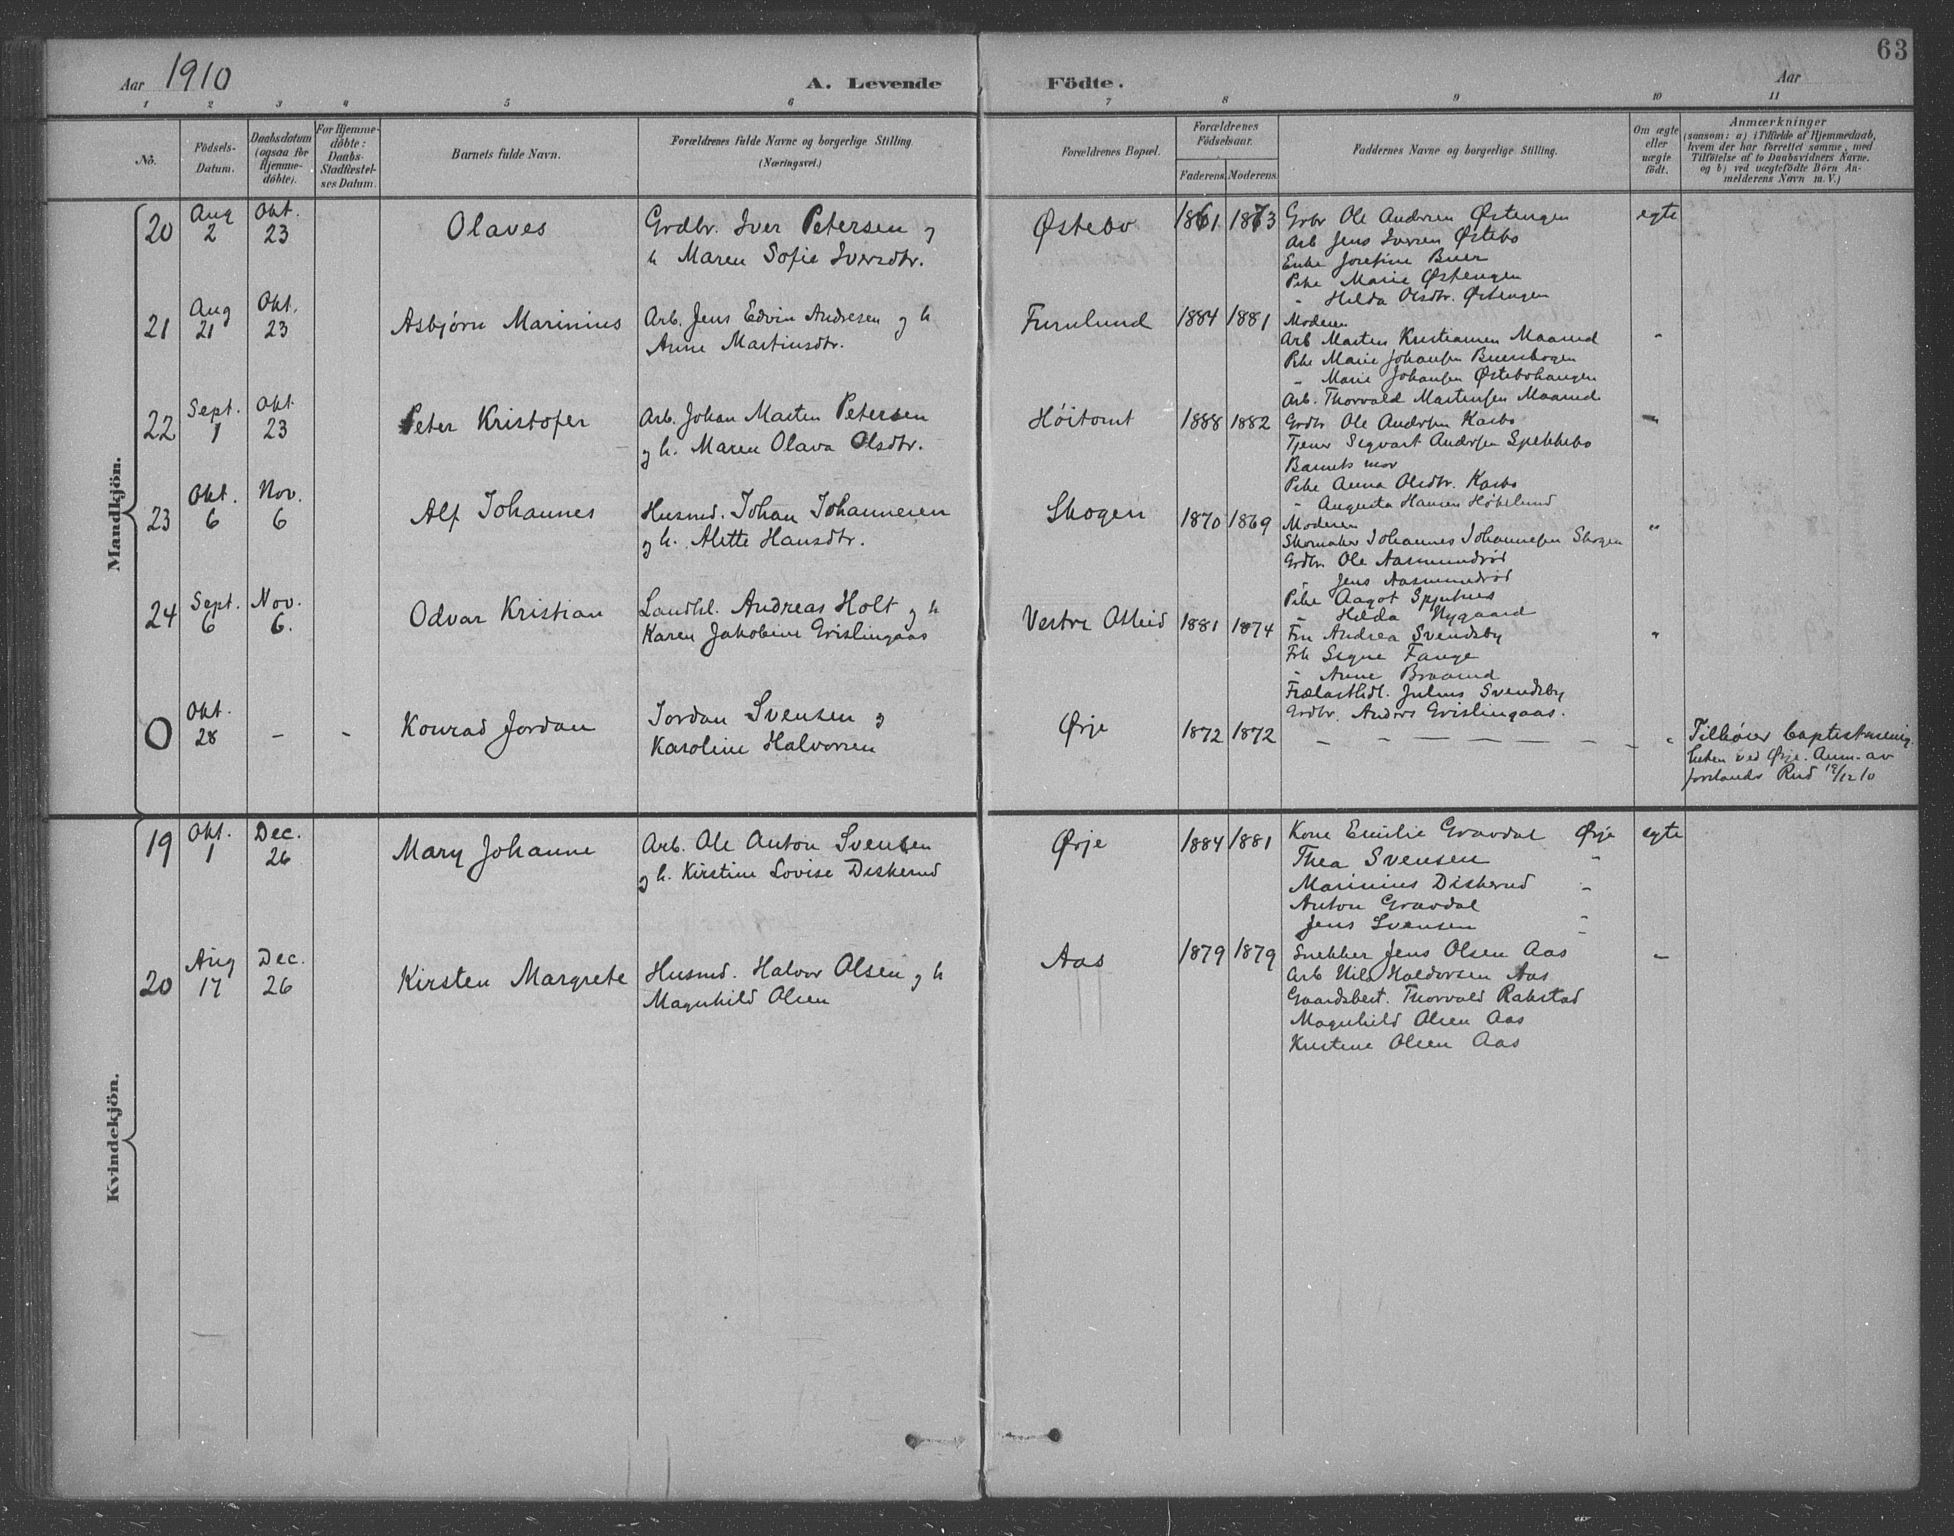 63
Aar 1910
A. Levende Födte.
Aar
1 2 3 4 5 6 7 8 9 10 11
No.
Födsels-
Datum.
Daabsdatum
(ogsaa for
Hjemme-
döbte).
For Hjemme-
döbte:
Daabs-
Stadfæstel-
ses Datum.
Barnets fulde Navn.
Forældrenes fulde Navne og borgerlige Stilling
(Næringsvei.)
Forældrenes Bopæl.
Forældrenes
Födselsaar.
Faderens. Moderens.
Faddernes Navne og borgerlige Stilling.
Om ægte
eller
uægte
födt.
Anmærkninger
(saasom: a) i Tilfælde af Hjemmedaab,
hvem der har forrettet samme, med
Tilföielse af to Daabsvidners Navne.
og b) ved uægtefödte Börn An-
melderens Navn m. V.)
Mandkjön.
20
Aug
2
Okt.
23
Olaves
Grdbr. Iver Petersen og
h Maren Sofie Iversdtr.
Østebo
1861 1873
Grbr Ole Andersen Østengen
Arb Jens Iversen Østebo
Enke Josefine Buer
Pike Marie Østengen
" Hilda Olsdtr. Østengen
egte
21
Aug
21
Okt.
23
Asbjørn Marinius
Arb. Jens Edvin Andresen og h
Anne Martinsdtr.
Furulund
1884 1881
Moderen
Arb Martin Kristiansen Maarud
Pike Marie Johansen Buerskogen
" Marie Johansen Østebohaugen
Arb. Thorvald Martinsen Maarud
"
22
Sept.
1
Okt
23
Peter Kristofer
Arb. Johan Martin Petersen
og h. Maren Olava Olsdtr.
Høitomt
1888 1882
Grdbr Ole Andersen Kasbo
Tjener Sigvart Andersen Spekkebo
Barnets mor
Pike Anna Olsdtr. Kasbo
" Augusta Hansen Høkelund
"
23
Okt.
6
Nov.
6
Alf Johannes
Husmd. Johan Johannesen
og h. Alette Hansdtr.
Skogen
1870 1869
Moderen
Skomaker Johannes Johannesen Skogen
Grdbr. Ole Aasmundrød
" Jens Aasmundrød
Pike Aagot Spjutnes
" Hilda Nygaard
"
24
Sept.
6
Nov.
6.
Odvar Kristian
Landhl. Andreas Holt og h
Karen Jakobine Grislingaas
Vestre Otteid
1881 1874
Fru Andrea Svendsby
Frk Signe Fange
" Anne Braarud
Trælasthdl. Julius Svendsby
Grdbr. Anders Grislingaas.
"
0
Okt.
28
–
-
Konrad Jordan
Jordan Svensen og
Karoline Halvorsen
Ørje
1872 1872
– – – – – – – –
"
Tilhører baptistmenig
heten ved Ørje. Anm. av
forstander Rud 19/12 10
Kvindekjön.
19
Okt.
1
Dec.
26
Mary Johanne
Arb. Ole Anton Svensen
og h. Kirstine Lovise Diskerud
Ørje
1884 1881
Kone Emilie Gravdal Ørje
Thea Svensen "
Marinius Diskerud "
Anton Gravdal
Jens Svensen "
egte
20
Aug
17
Dec.
26
Kirsten Margrete
Husmd. Halvor Olsen og h
Magnhild Olsen
Aas
1879 1879
Snekker Jens Olsen Aas
Arb Nils Haldorsen Aas
Gaardsbest. Thorvald Rakstad
Magnhild Olsen Aas
Kristine Olsen Aas
–